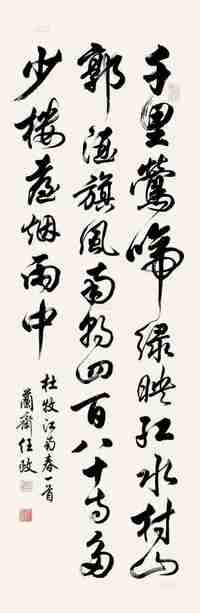 千里鶯啼綠映紅水村山
郭酒旗風南朝四百八十寺多
少樓臺烟雨中
杜牧江南春一首
蘭齋任政